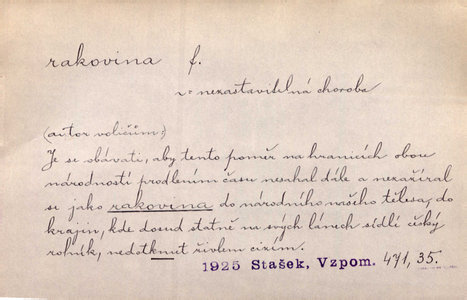 rakovina f.
v: nezastavitelná choroba
(autor voličům:)
Je se obávati, aby tento poměr na hranicích obou
národností prodlením času nesahal dále a nezažíral
se jako rakovina do národního našeho tělesa, do
krajin, kde dosud statně na svých lánech sídlí český
rolník, nedotknut živlem cizím.
1925 Stašek, Vzpom. 471, 35.